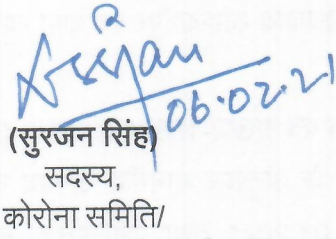 06.02.21
(सुरजन सिंह)
सदस्य,
कोरोना समिति/